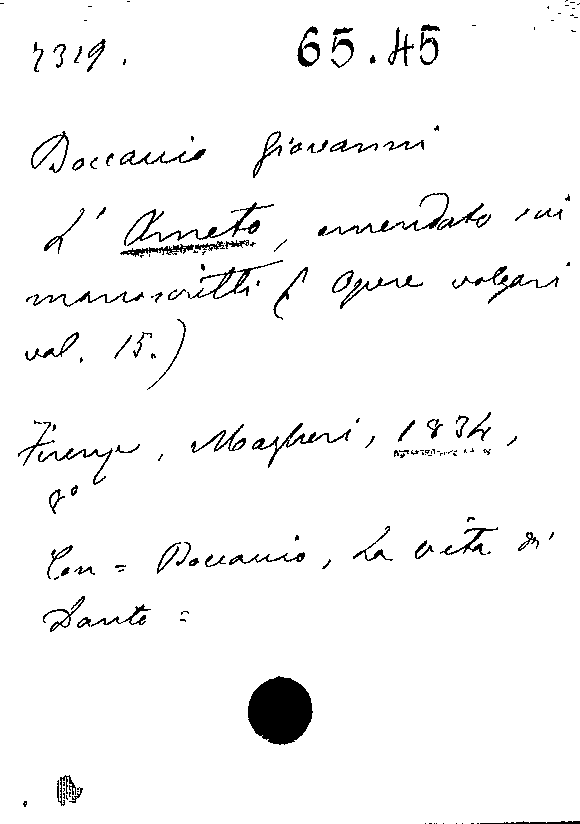 7319. 65.45
Boccaccio Giovanni
L' Ameto, emendato sui
manoscritti (Opere volgari
vol. 15.)
Firenze, Magheri, 1834,
8°
Con = Boccaccio, La vita di
Dante =